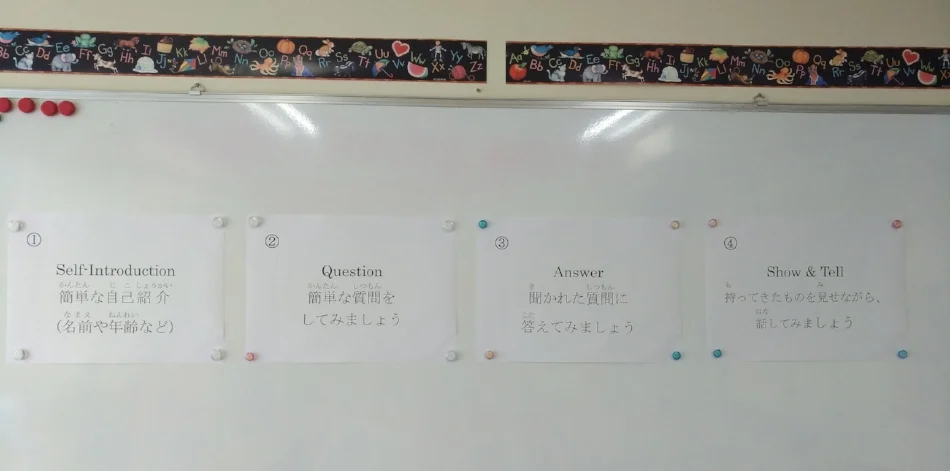 Bb Cc Dd Ee Ff Gg Hh Ii Jj Kk Ll Mm Nn Oo Pp Qq Rr Ss Tt Uu Vv Ww Xx Yy Zz
Aa Bb Cc Dd Ee Ff Gg Hh Ii Jj Kk Ll Mm Nn Oo Pp Qq Rr Ss Tt Uu Vv Ww
①
Self-Introduction
かんたん じこしょうかい
簡単な自己紹介
なまえ ねんれい
(名前や年齢など)
②
Question
かんたん しつもん
簡単な質問を
してみましょう
③
Answer
き しつもん
聞かれた質問に
こた
答えてみましょう
④
Show & Tell
も み
持ってきたものを見せながら、
はな
話してみましょう